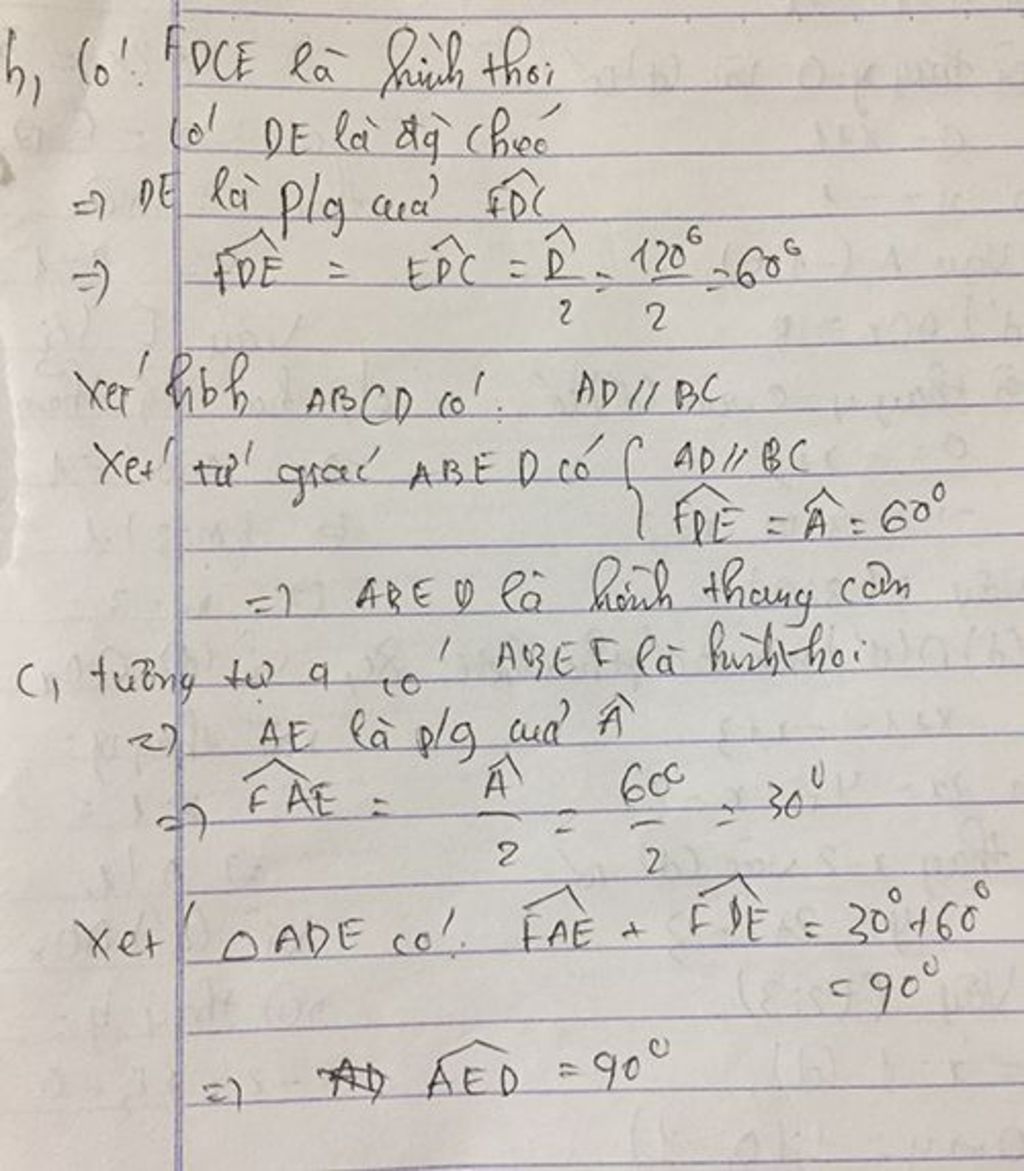 b, Có: FDCE là hình thoi
Có DE là đg chéo
=> DE là p/g của FDC
=> FDE = EDC = D/2 = 120°/2 = 60°
Xét hbh ABCD có: AD // BC
Xét tứ giác ABED có { AD // BC
FDE = A = 60°
=> ABED là hình thang cân
C, tương tự a có ABEF là hình thoi
=> AE là p/g của A
=> FAE = A/2 = 60°/2 = 30°
Xét △ADE có: FAE + FDE = 30° + 60°
= 90°
=> AED = 90°